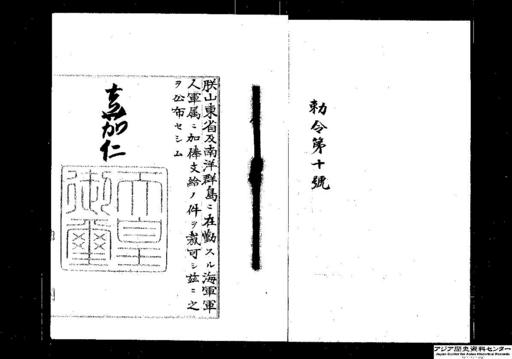 勅令第十號
朕山東省及南洋群島ニ在勤スル海軍軍
人軍属ニ加俸支給ノ件ヲ裁可シ茲ニ之
ヲ公布セシム
嘉仁
天皇
御璽
アジア歴史資料センター
Japan Center for Asian Historical Records